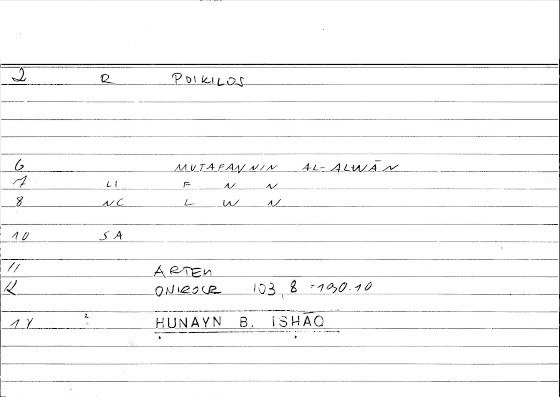 2 R POIKILOS
6 MUTAFANNIN AL-ALWĀN
7 LI F N N
8 NC L W N
10 SA
11 ARTEM
12 ONIROCR 103,8 = 190.10
14 2 ḤUNAYN B. ISḤĀQ